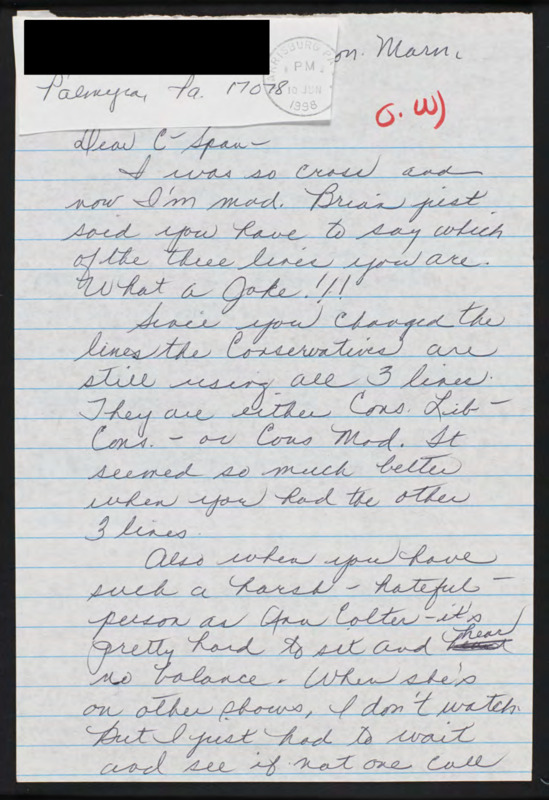 on. Morn.
Palmyra, Pa. 17078
HARRISBURG PA
PM
10 JUN
1998
Dear C-Span-
I was so cross and
now I'm mad. Brian just
said you have to say which
of the three lines you are.
What a Joke!!!
Since you changed the
lines the Conservatives are
still using all 3 lines.
They are either Cons. Lib-
Cons. - or Cons Mod. It
seemed so much better
when you had the other
3 lines.
Also when you have
such a harsh - hateful -
person as Ann Colter - it's
pretty hard to sit and hear
no balance. When she's
on other shows, I don't watch
But I just had to wait
and see if not one call